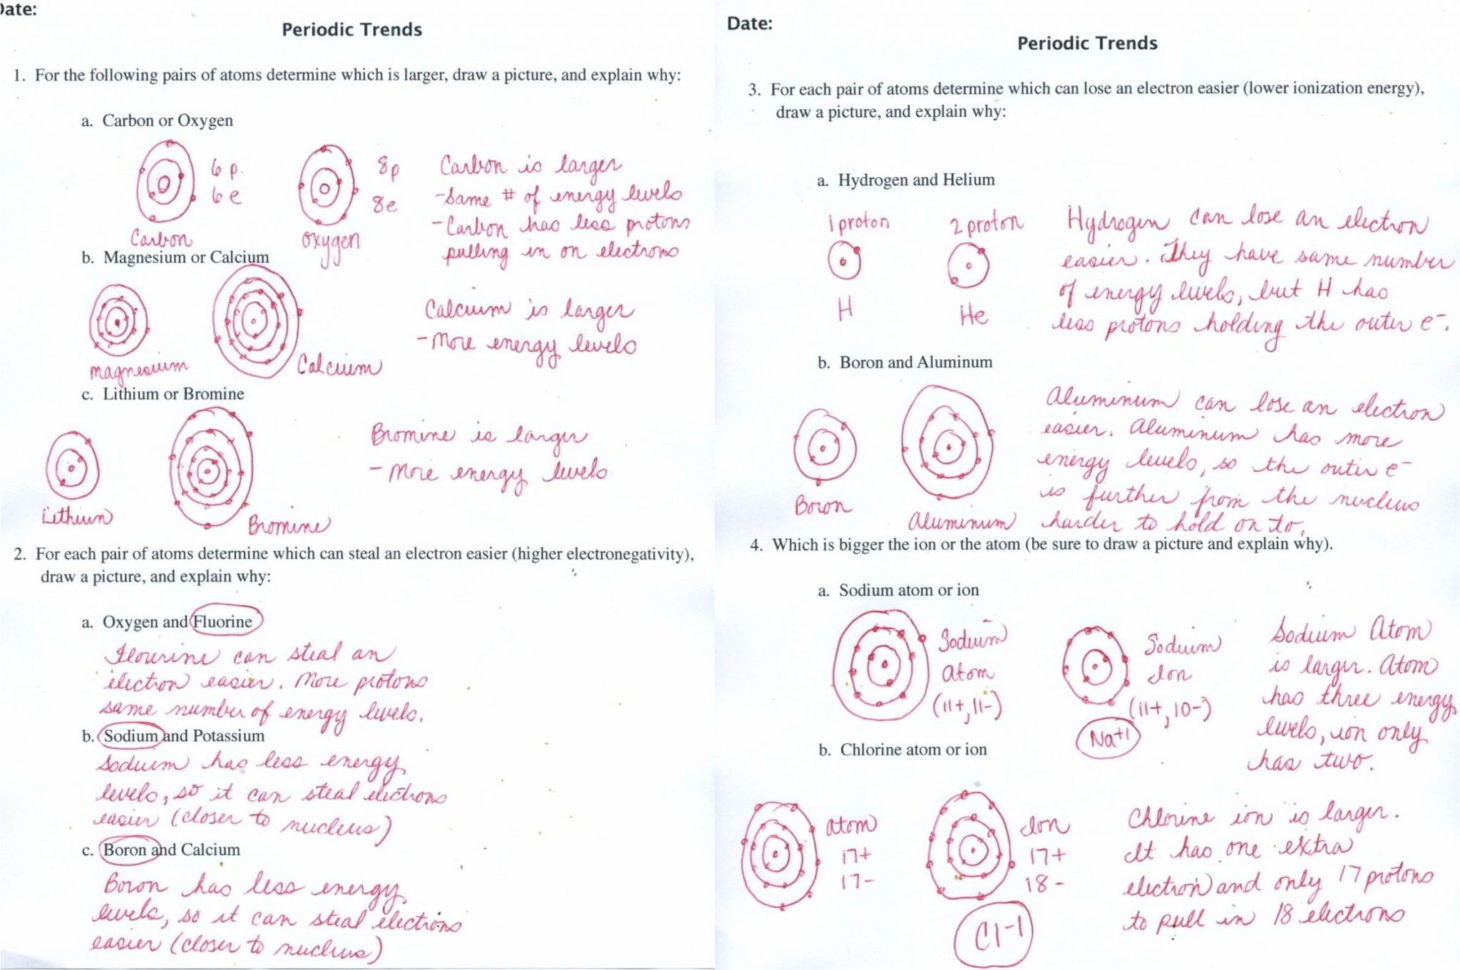 Date:
Periodic Trends
1. For the following pairs of atoms determine which is larger, draw a picture, and explain why:
a. Carbon or Oxygen
6 p.
6 e
Carbon
8p
8e
Oxygen
Carbon is larger
-Same # of energy levels
-Carbon has less protons
pulling in on electrons
b. Magnesium or Calcium
magnesium
Calcium
Calcium is larger
-More energy levels
c. Lithium or Bromine
Lithium
Bromine
Bromine is larger
- More energy levels
2. For each pair of atoms determine which can steal an electron easier (higher electronegativity),
draw a picture, and explain why:
a. Oxygen and Fluorine
Flourine can steal an
electron easier. More protons
same number of energy levels.
b. Sodium and Potassium
Sodium has less energy
levels, so it can steal electrons
easier (closer to nucleus)
c. Boron and Calcium
Boron has less energy
levels, so it can steal electrons
easier (closer to nucleus)
Date:
Periodic Trends
3. For each pair of atoms determine which can lose an electron easier (lower ionization energy),
draw a picture, and explain why:
a. Hydrogen and Helium
1 proton
H
2 proton
He
Hydrogen can lose an electron
easier. They have same number
of energy levels, but H has
less protons holding the outer e⁻.
b. Boron and Aluminum
Boron
Aluminum
Aluminum can lose an electron
easier. Aluminum has more
energy levels, so the outer e⁻
is further from the nucleus
harder to hold on to.
4. Which is bigger the ion or the atom (be sure to draw a picture and explain why).
a. Sodium atom or ion
Sodium
atom
(11+, 11-)
Sodium
Ion
(11+, 10-)
Na+1
Sodium Atom
is larger. Atom
has three energy
levels, ion only
has two.
b. Chlorine atom or ion
atom
17+
17-
Ion
17+
18-
Cl-1
Chlorine ion is larger.
It has one extra
electron and only 17 protons
to pull in 18 electrons